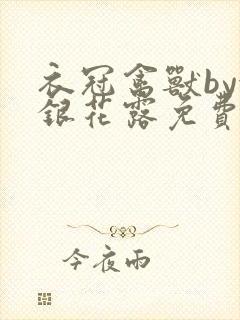 衣冠禽獸by
銀花露免費
今夜雨